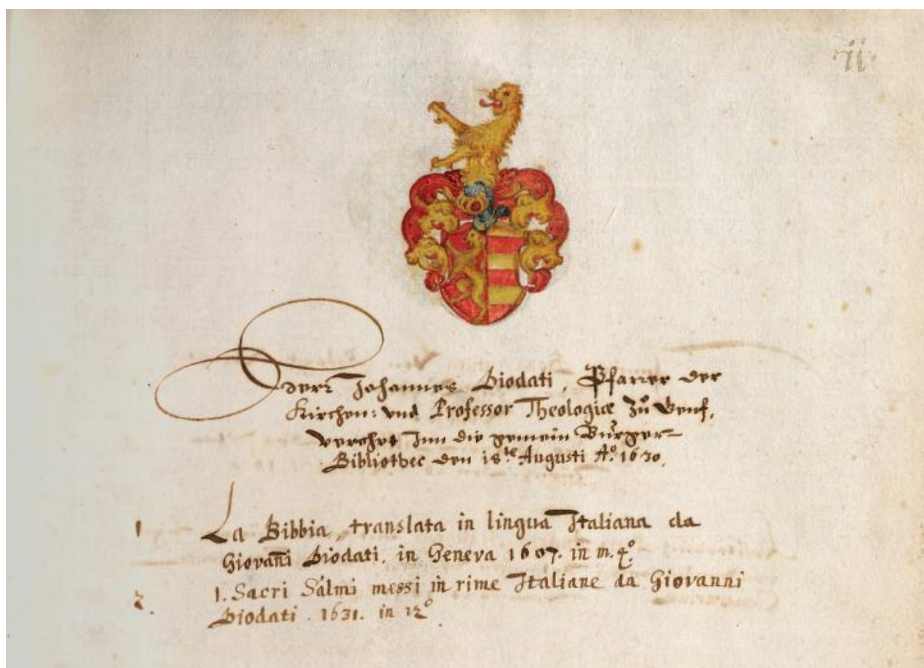 11.
Herr Johannes Diodati, Pfarrer der
Kirchen: vnd Professor Theologiæ zů Genf,
verehrt Inn die gemein Burger-
Bibliothec den 18te Augusti Aº. 1630.
1 La Bibbia, translata in lingua Italiana da
Giovañi Diodati. in Geneva 1607. in m. 4º.
2. I. Sacri Salmi messi in rime Italiane da Giovanni
Diodati. 1631. in 12º